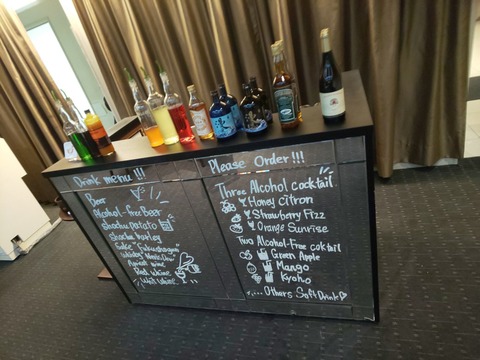 Drink menu!!!
Beer
Alcohol-free Beer
Shochu potato
Shochu barley
Sake "Fukushogun"
Apricot wine
Red wine
Whit wine
Please Order!!!
Three Alcohol cocktail
Honey citron
Strawberry Fizz
Orange Sunrise
Two Alcohol-Free coktail
Green Apple
Mango
Kyoho
.... Others Soft Drink